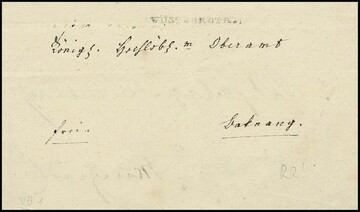 WÜSTENROTH.
Königl. Hochlöbl.m Oberamt
frei.
Baknang.
R2!